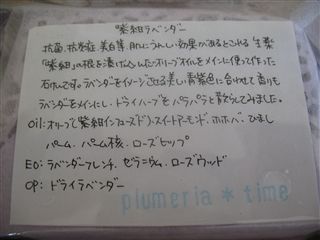 "紫紺ラベンダー"
抗菌、抗炎症、美白等、肌にうれしい効果があるとされる生薬
「紫紺」の根を漬け込んだオリーブオイルをメインに使って作った
石けんです。ラベンダーをイメージさせる美しい青紫色に合わせて香りも
ラベンダーをメインにし、ドライハーブをパラパラと散らしてみました。
Oil: オリーブ(紫紺インフューズド)・スイートアーモンド、ホホバ、ひまし
パーム、パーム核、ローズヒップ
EO: ラベンダーフレンチ、ゼラニウム、ローズウッド
OP: ドライラベンダー
plumeria * time